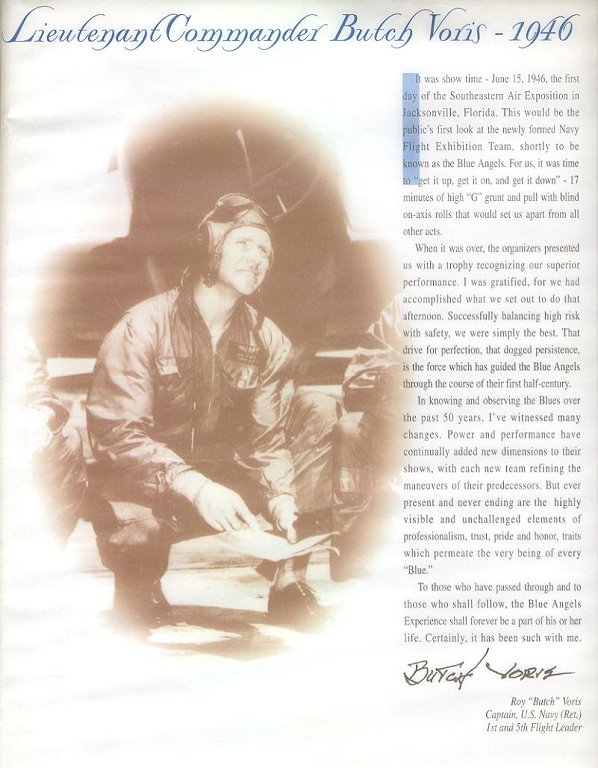 Lieutenant Commander Butch Voris - 1946
It was show time - June 15, 1946, the first
day of the Southeastern Air Exposition in
Jacksonville, Florida. This would be the
public's first look at the newly formed Navy
Flight Exhibition Team, shortly to be
known as the Blue Angels. For us, it was time
to "get it up, get it on, and get it down" - 17
minutes of high "G" grunt and pull with blind
on-axis rolls that would set us apart from all
other acts.
When it was over, the organizers presented
us with a trophy recognizing our superior
performance. I was gratified, for we had
accomplished what we set out to do that
afternoon. Successfully balancing high risk
with safety, we were simply the best. That
drive for perfection, that dogged persistence,
is the force which has guided the Blue Angels
through the course of their first half-century.
In knowing and observing the Blues over
the past 50 years, I've witnessed many
changes. Power and performance have
continually added new dimensions to their
shows, with each new team refining the
maneuvers of their predecessors. But ever
present and never ending are the highly
visible and unchallenged elements of
professionalism, trust, pride and honor, traits
which permeate the very being of every
"Blue."
To those who have passed through and to
those who shall follow, the Blue Angels
Experience shall forever be a part of his or her
life. Certainly, it has been such with me.
Butch Voris
Roy "Butch" Voris
Captain, U.S. Navy (Ret.)
1st and 5th Flight Leader